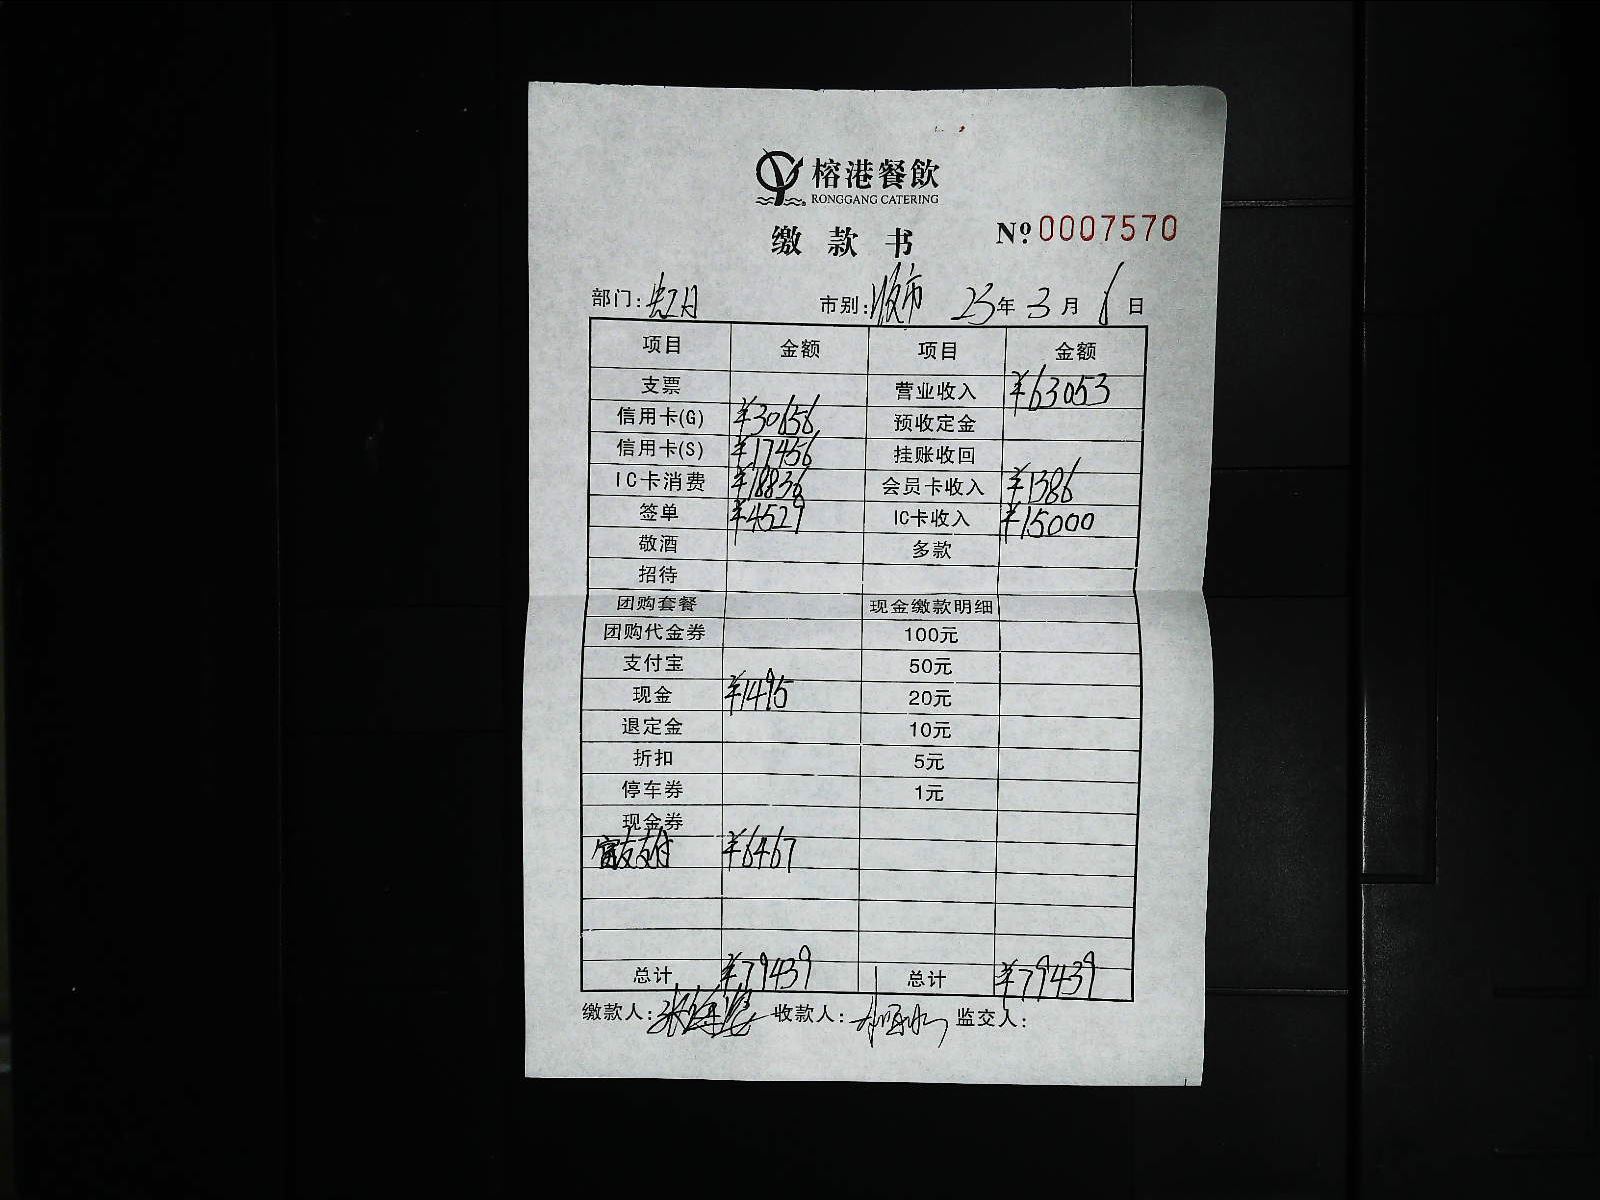 榕港餐飲
RONGGANG CATERING
缴款书 №0007570
部门: 市别: 市 23年3月1日
项目 金额 项目 金额
支票 营业收入 ¥63053
信用卡(G) ¥30656 预收定金
信用卡(S) ¥17456 挂账收回
IC卡消费 ¥18836 会员卡收入 ¥1386
签单 ¥4529 IC卡收入 ¥15000
敬酒 多款
招待
团购套餐 现金缴款明细
团购代金券 100元
支付宝 50元
现金 ¥1495 20元
退定金 10元
折扣 5元
停车券 1元
现金券
富友支付 ¥6467
总计 ¥79439 总计 ¥79439
缴款人: 收款人: 监交人: